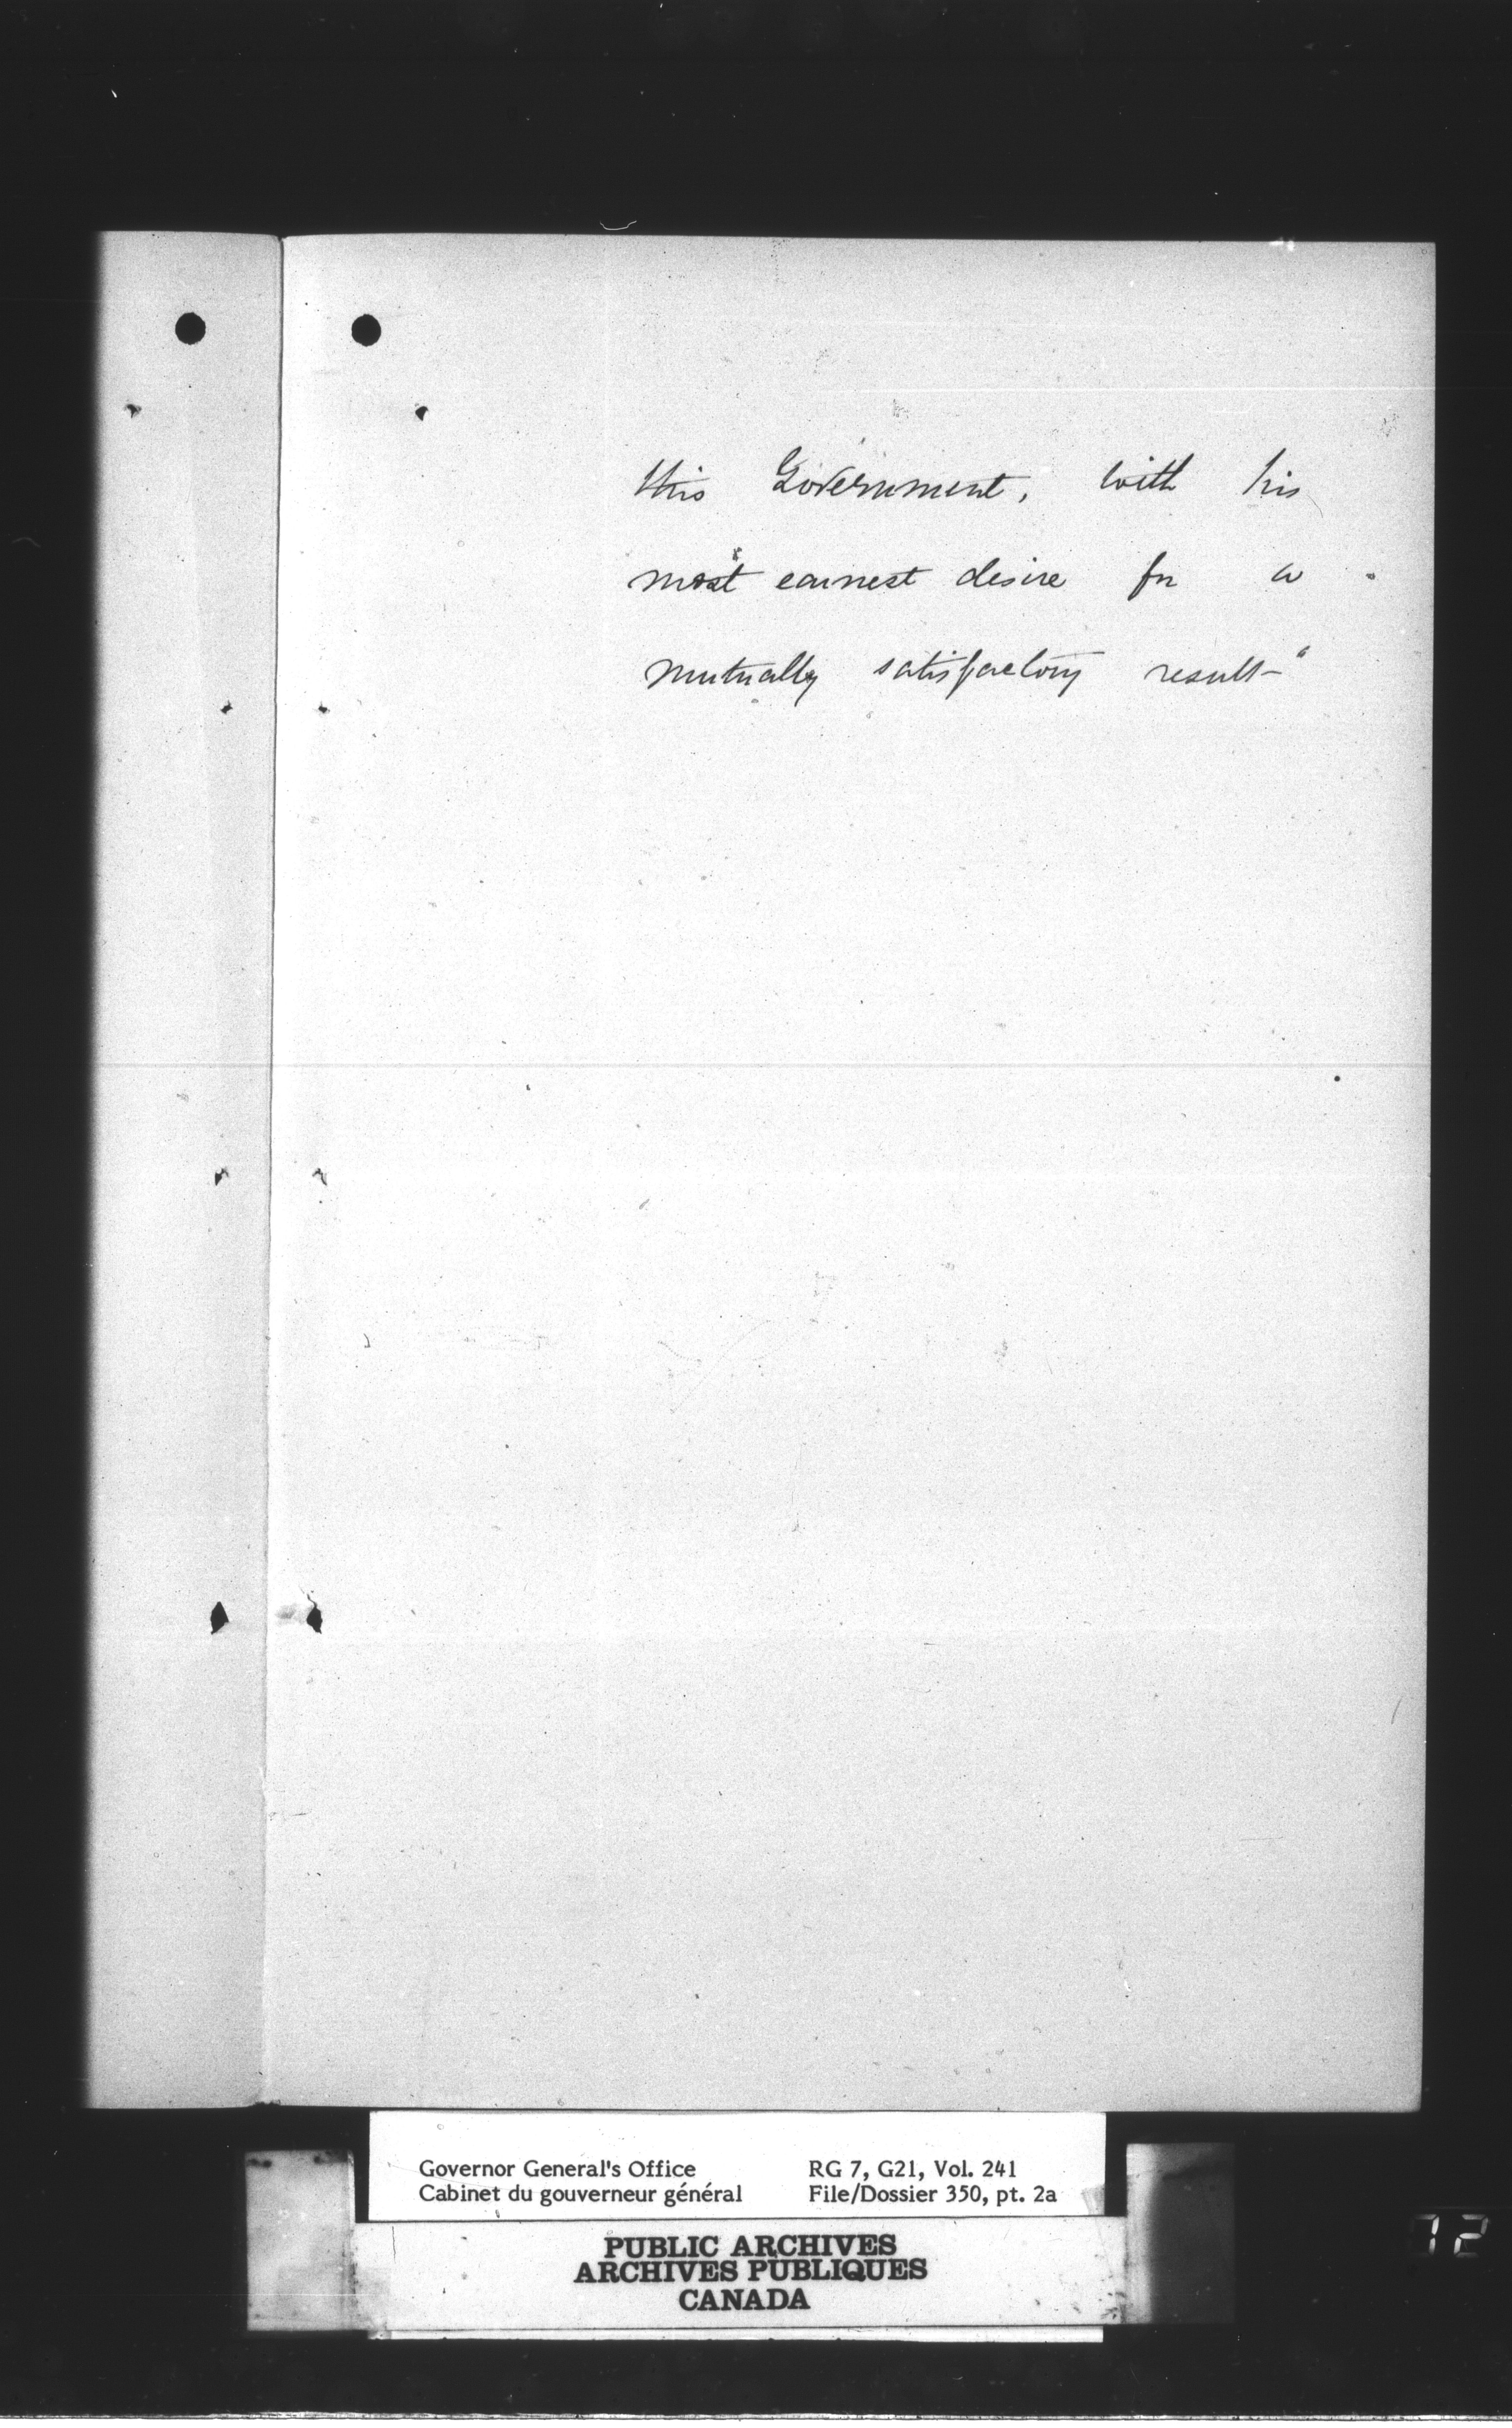 this Government, with his
most earnest desire for a
mutually satisfactory result"
Governor General's Office RG 7, G21, Vol. 241
Cabinet du gouverneur général File/Dossier 350, pt. 2a
PUBLIC ARCHIVES
ARCHIVES PUBLIQUES
CANADA
72